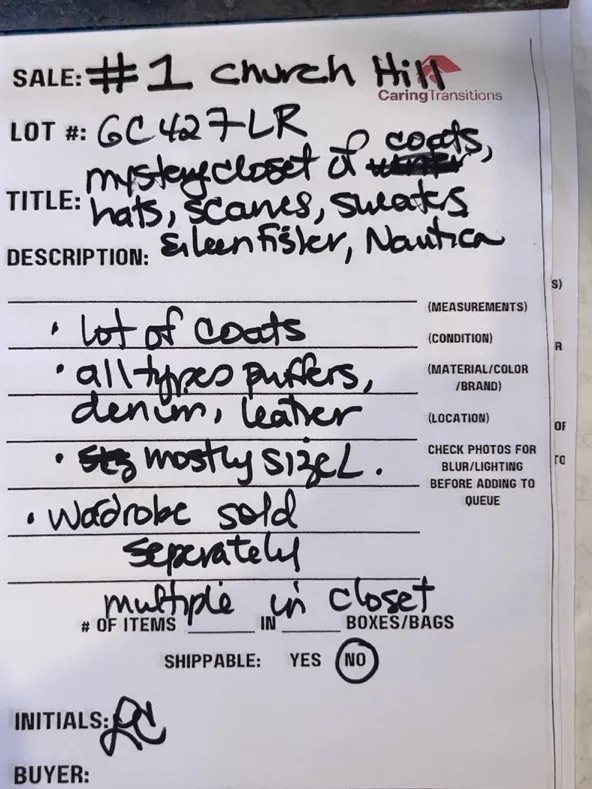 SALE: #1 Church Hill
CaringTransitions
LOT #: GC427LR
mystery closet of coats,
TITLE: hats, scarves, sweaters
DESCRIPTION: Eileen Fisher, Nautica
(MEASUREMENTS)
• lot of coats (CONDITION)
• all types puffers, (MATERIAL/COLOR
/BRAND)
denim, leather (LOCATION)
• mostly size L. CHECK PHOTOS FOR
BLUR/LIGHTING
BEFORE ADDING TO
QUEUE
• Wadrobe sold
seperately
multiple in closet
# OF ITEMS IN BOXES/BAGS
SHIPPABLE: YES NO
INITIALS: LC
BUYER:
S)
R
OF
TO